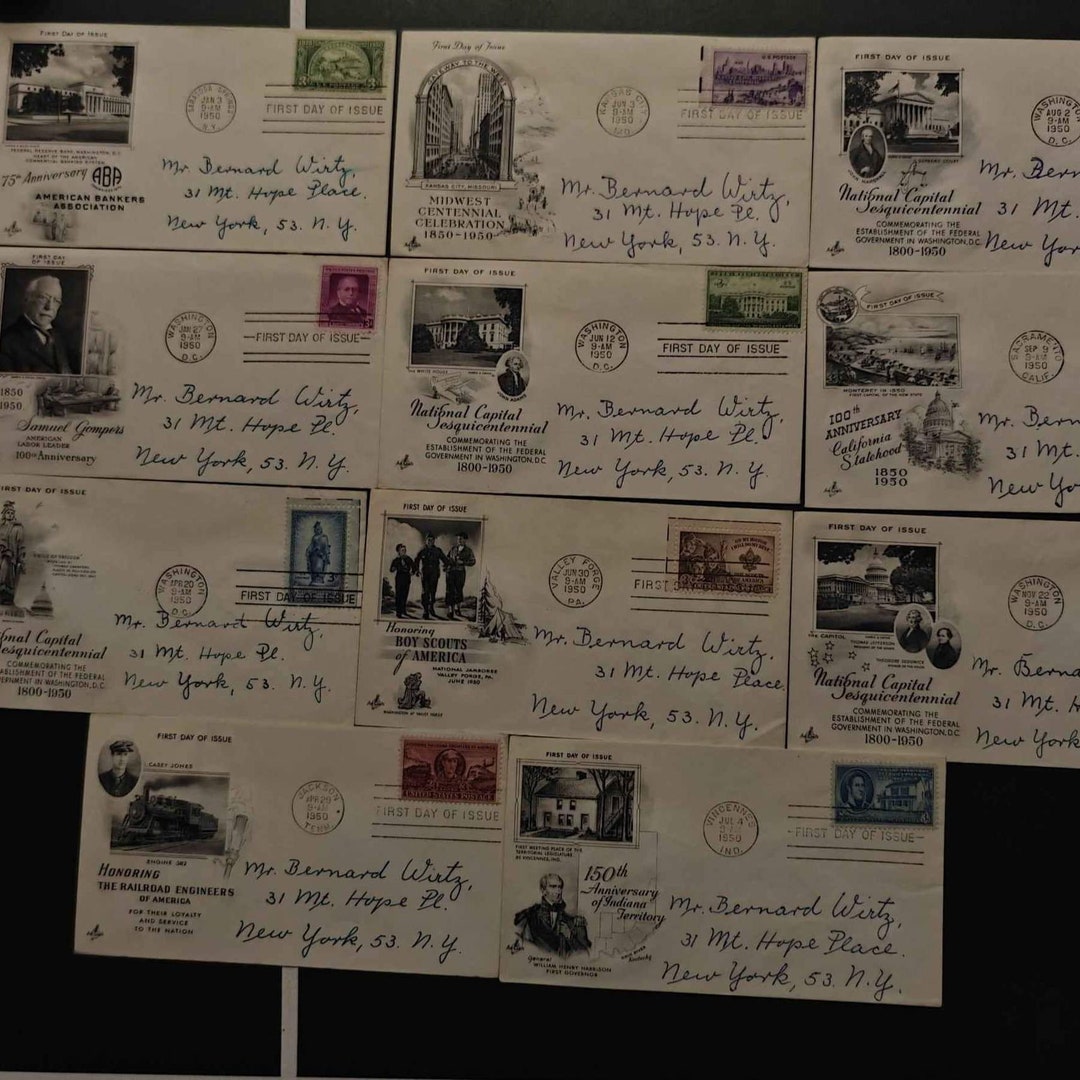 FIRST DAY OF ISSUE
FEDERAL RESERVE BANK, WASHINGTON, D.C.
HEART OF THE AMERICAN
COMMERCIAL BANKING SYSTEM
75th Anniversary ABA
AMERICAN BANKERS
ASSOCIATION
SARATOGA SPRINGS
JAN 3
9-AM
1950
N.Y.
FIRST DAY OF ISSUE
Mr Bernard Wirtz,
31 Mt. Hope Place.
New York, 53. N. Y.
First Day of Issue
GATEWAY TO THE WEST
KANSAS CITY, MISSOURI
MIDWEST
CENTENNIAL
CELEBRATION
1850-1950
KANSAS CITY
JUN 3
9-AM
1950
MO.
U.S. POSTAGE
FIRST DAY OF ISSUE
Mr. Bernard Wirtz,
31 Mt. Hope Pl.
New York, 53. N. Y.
FIRST DAY OF ISSUE
National Capital
Sesquicentennial
COMMEMORATING THE
ESTABLISHMENT OF THE FEDERAL
GOVERNMENT IN WASHINGTON, D.C.
1800-1950
WASHINGTON
AUG 2
9-AM
1950
D. C.
Mr. Bern
31 Mt.
New Yor
FIRST DAY
OF ISSUE
1850
1950
Samuel Gompers
AMERICAN
LABOR LEADER
100th Anniversary
WASHINGTON
JAN 27
9-AM
1950
D.C.
FIRST DAY OF ISSUE
Mr. Bernard Wirtz,
31 Mt. Hope Pl.
New York, 53. N. Y.
FIRST DAY OF ISSUE
THE WHITE HOUSE
National Capital
Sesquicentennial
COMMEMORATING THE
ESTABLISHMENT OF THE FEDERAL
GOVERNMENT IN WASHINGTON, D.C.
1800-1950
WASHINGTON
JUN 12
9-AM
1950
D.C.
FIRST DAY OF ISSUE
Mr. Bernard Wirtz,
31 Mt. Hope Pl.
New York, 53. N. Y.
FIRST DAY OF ISSUE
MONTEREY IN 1850
FIRST CAPITAL OF THE NEW STATE
100th
ANNIVERSARY
California
Statehood
1850
1950
SACRAMENTO
SEP 9
9-AM
1950
CALIF.
Mr. Bern
31 Mt.
New Yo
FIRST DAY OF ISSUE
onal Capital
esquicentennial
COMMEMORATING THE
ABLISHMENT OF THE FEDERAL
ERNMENT IN WASHINGTON, D.C.
1800-1950
WASHINGTON
APR 20
9-AM
1950
D.C.
FIRST DAY OF ISSUE
Mr. Bernard Wirtz,
31 Mt. Hope Pl.
New York, 53. N. Y.
FIRST DAY OF ISSUE
Honoring
BOY SCOUTS
of AMERICA
NATIONAL JAMBOREE
VALLEY FORGE, PA.
JUNE 1950
WASHINGTON AT VALLEY FORGE
VALLEY FORGE
JUN 30
9-AM
1950
PA.
FIRST DAY OF ISSUE
Mr. Bernard Wirtz.
31 Mt. Hope Place.
New York, 53. N. Y.
FIRST DAY OF ISSUE
THE CAPITOL
THOMAS JEFFERSON
THEODORE SEDGWICK
National Capital
Sesquicentennial
COMMEMORATING THE
ESTABLISHMENT OF THE FEDERAL
GOVERNMENT IN WASHINGTON, D.C.
1800-1950
WASHINGTON
NOV 22
9-AM
1950
D.C.
Mr. Berna
31 Mt. H
New York
FIRST DAY OF ISSUE
CASEY JONES
ENGINE 382
HONORING
THE RAILROAD ENGINEERS
OF AMERICA
FOR THEIR LOYALTY
AND SERVICE
TO THE NATION
JACKSON
APR 29
9-AM
1950
TENN.
UNITED STATES POSTAGE
FIRST DAY OF ISSUE
Mr. Bernard Wirtz,
31 Mt. Hope Pl.
New York, 53. N. Y.
FIRST DAY OF ISSUE
FIRST MEETING PLACE OF THE
TERRITORIAL LEGISLATURE
AT VINCENNES, IND.
150th
Anniversary
of Indiana
Territory
Kentucky
General
WILLIAM HENRY HARRISON
FIRST GOVERNOR
VINCENNES
JUL 4
9-AM
1950
IND.
FIRST DAY OF ISSUE
Mr. Bernard Wirtz,
31 Mt. Hope Place.
New York, 53. N. Y.